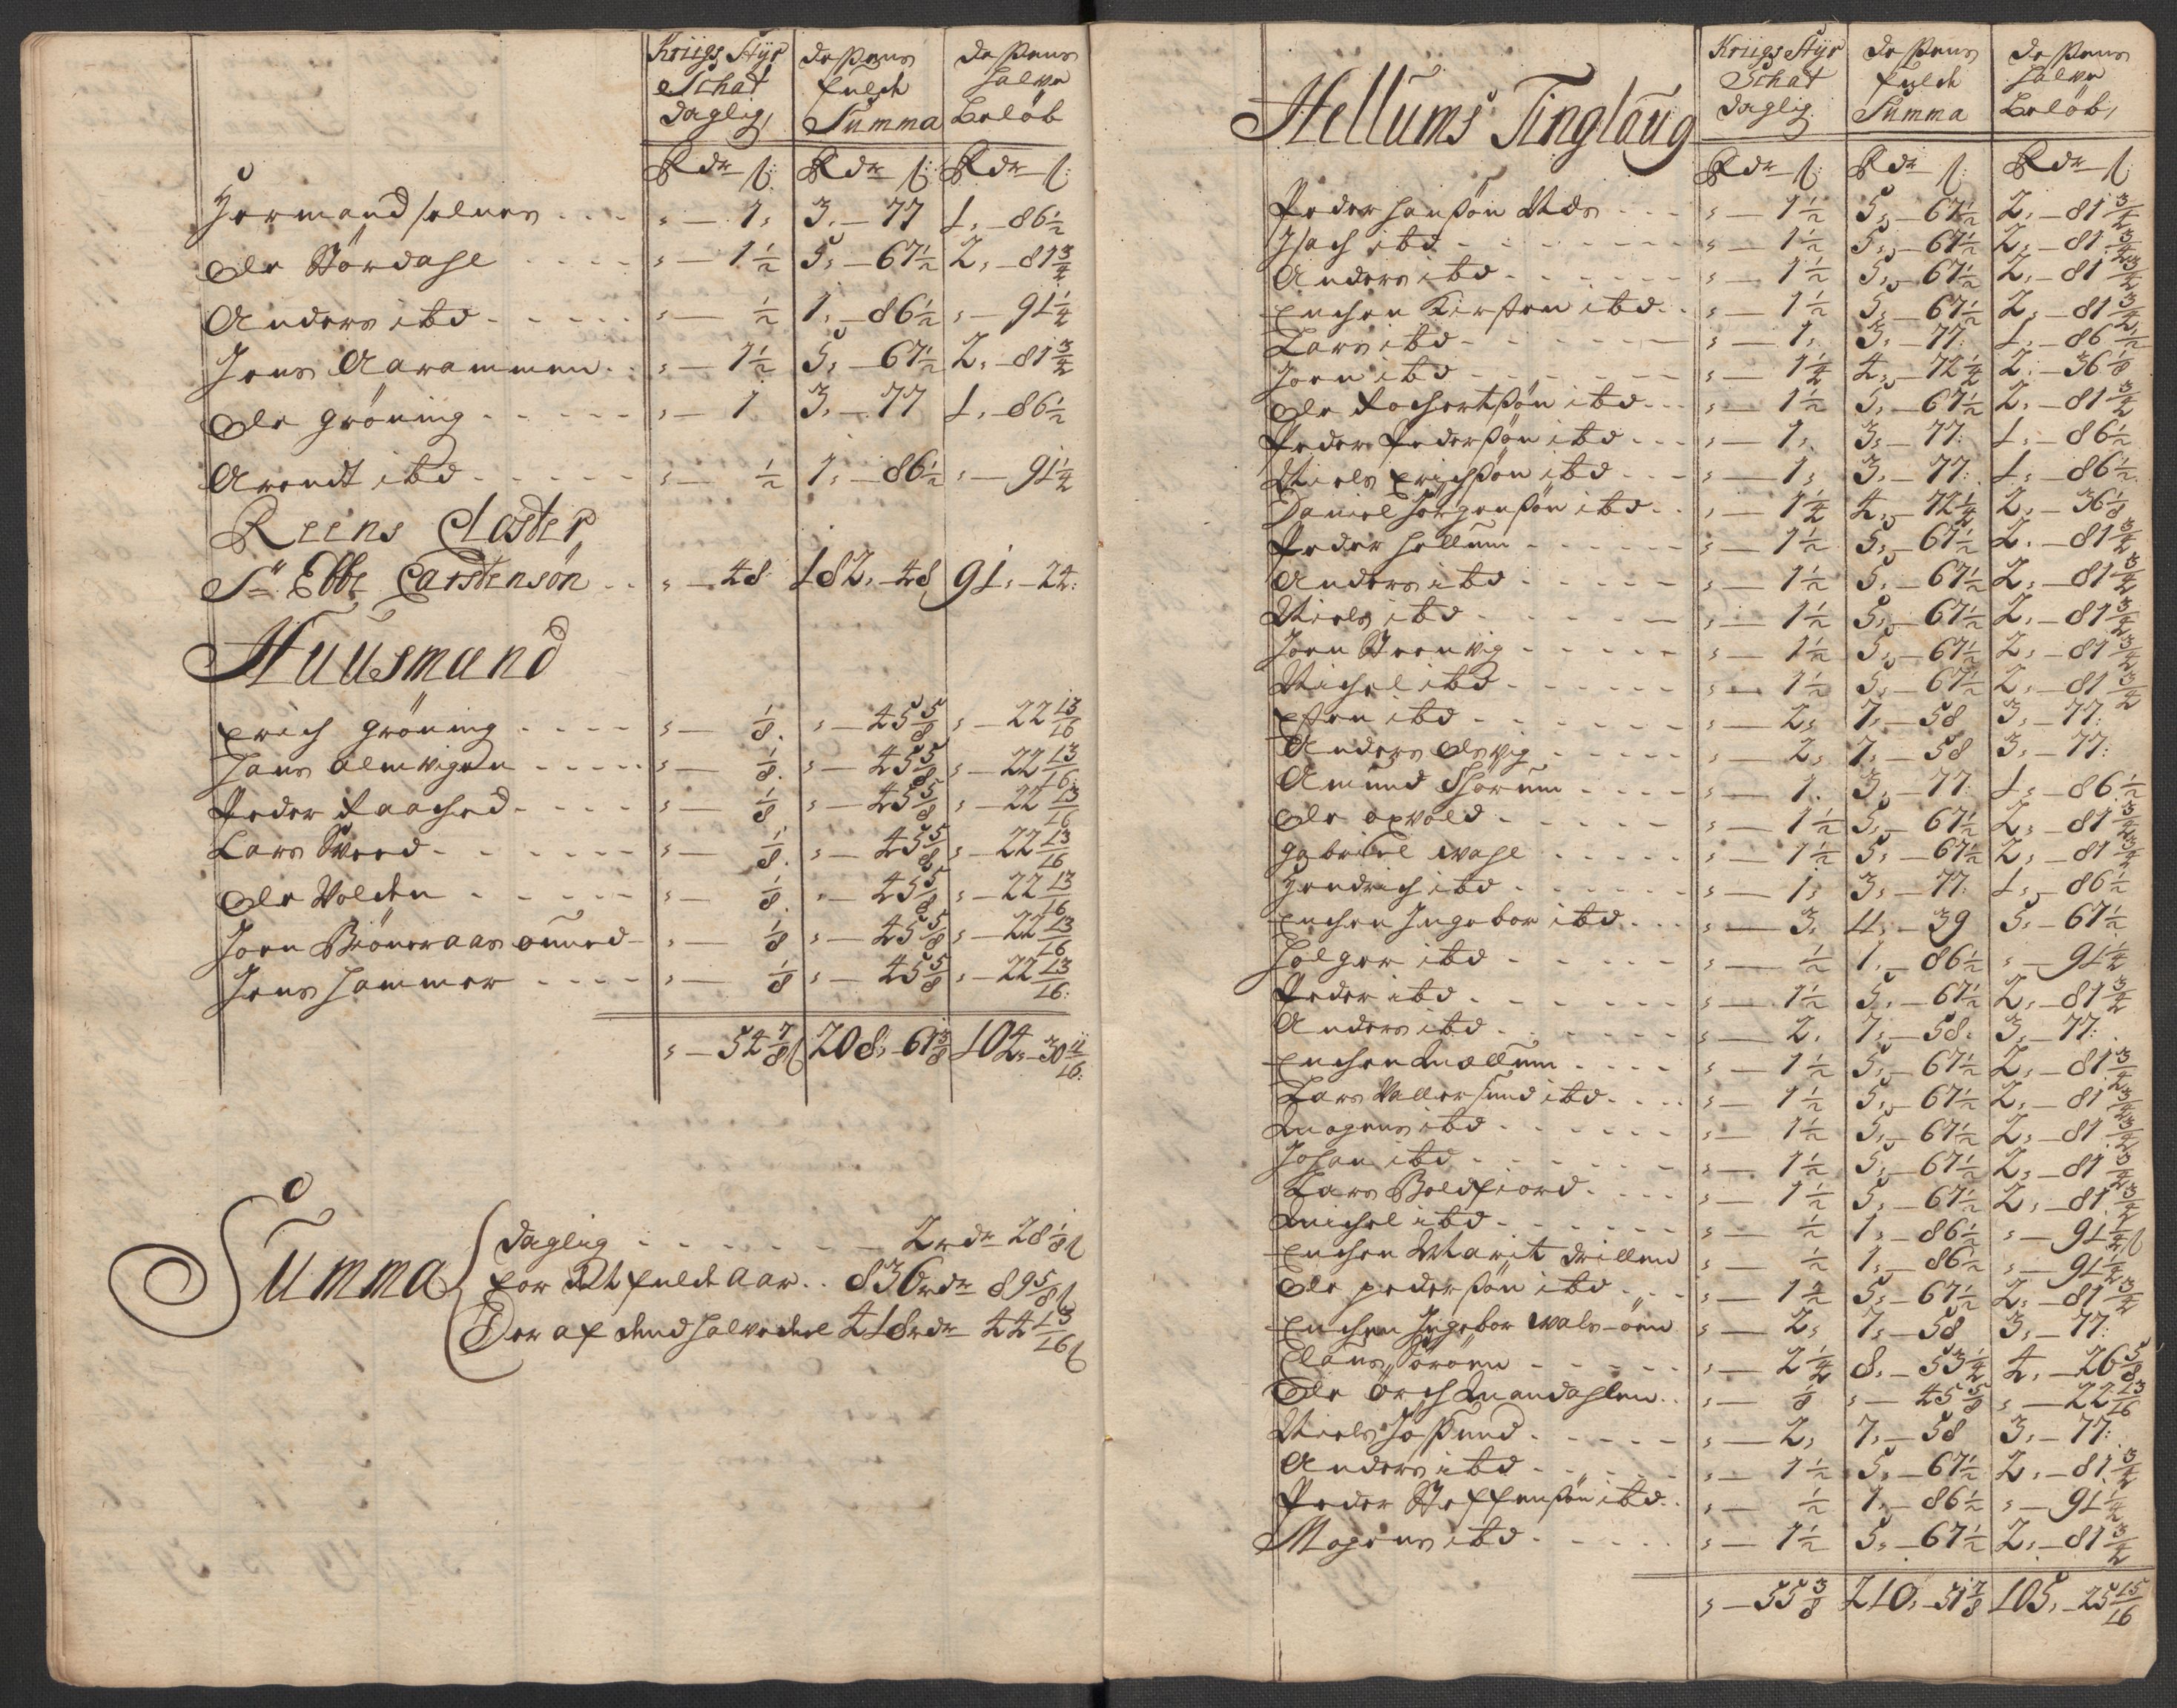 Kriigs Styr dessens dessens
Schat fulde halve
daglig, Summa Beløb
Rdr ß: Rdr ß: Rdr ß:
Hermand selnes .... " — 1, 3, — 77 1, — 86½
Ole Størdahl .... " — 1½ 5, — 67½ 2, — 81¾
Anders ibd ..... " — ½ 1, — 86½ " — 91¼
Jens Aarammen .. " — 1½ 5, — 67½ 2, — 81¾
Ole Grøning ..... " — 1 3, — 77 1, — 86½
Arendt ibd ..... " — ½ 1, — 86½ " — 91¼
Reins Closter
Sr. Ebbe Carstensøn .. " — 48 182, — 48 91, — 24:
Huusmænd
Erich Grøning .... " — ⅛. " — 45⅝ " — 22 13/16
Hans Almvigen ..... " — ⅛. " — 45⅝ " — 22 13/16
Peder Raached .... " — ⅛ " — 45⅝ " — 22 13/16
Lars Sveed ...... " — ⅛. " — 45⅝ " — 22 13/16
Ole Volden ..... " — ⅛. " — 45⅝ " — 22 13/16
Joen Biøneraas " — ⅛ " — 45⅝ " — 22 13/16
Jens Hammer .... " — ⅛ " — 45⅝ " — 22 13/16:
" — 54⅞ß 208, — 61⅜ 104, — 30 11/16:
Summa
daglig ...... 2 rdr 28⅛ß
for det fulde Aar .. 836 rdr 89⅝ß
Der af dend halvedeel 418 rdr 44 13/16ß
Kriigs Styr dessens dessens
Schat fulde halve
daglig. Summa Beløb,
Hellums Tinglaug
Rdr ß: Rdr ß: Rdr ß:
Peder Hansøn Næs ... " — 1½ 5, — 67½ 2, — 81¾
Isach ibd ....... " — 1½ 5, — 67½ 2, — 81¾
Anders ibd ...... " — 1½ 5, — 67½ 2, — 81¾
Enchen Kirsten ibd .. " — 1½ 5, — 67½ 2, — 81¾
Lars ibd ....... " — 1, 3, — 77: 1, — 86½
Joen ibd ....... " — 1¼ 4, — 72¼ 2, — 36⅛
Ole Fochertsøn ibd ... " — 1½ 5, — 67½ 2, — 81¾
Peder Pedersøn ibd ... " — 1, 3, — 77: 1, — 86½
Niels Erichsøn ibd ... " — 1, 3, — 77: 1, — 86½.
Daniel Jørgensøn ibd .. " — 1¼ 4, — 72¼ 2, — 36⅛
Peder Hellum ...... " — 1½ 5, — 67½ 2, — 81¾
Anders ibd ..... " — 1½ 5, — 67½ 2, — 81¾
Niels ibd ...... " — 1½ 5, — 67½ 2, — 81¾
Joen Steenvig ..... " — 1½ 5, — 67½ 2, — 81¾
Michel ibd ...... " — 1½ 5, — 67½ 2, — 81¾
Esten ibd ...... " — 2, 7, — 58 3, — 77:
Anders Olsvig ..... " — 2, 7, — 58 3, — 77:
Amund Schørum .... " — 1. 3, — 77: 1, — 86½
Ole Opvold ..... " — 1½ 5, — 67½ 2, — 81¾
Gabriel Wahl ..... " — 1½ 5, — 67½ 2, — 81¾
Hendrich ibd ...... " — 1, 3, — 77: 1, — 86½
Enchen Ingebor ibd ... " — 3. 11, — 39 5, — 67½
Holger ibd ..... " — ½ 1, — 86½ " — 91¼
Peder ibd ...... " — 1½ 5, — 67½ 2, — 81¾
Anders ibd ...... " — 2. 7, — 58. 3, — 77:
Enchen Mællum .... " — 1½ 5, — 67½ 2, — 81¾
Lars Vallersund ibd .... " — 1½ 5, — 67½ 2, — 81¾
Mogens ibd ...... " — 1½ 5, — 67½ 2, — 81¾
Johan ibd ...... " — 1½ 5, — 67½ 2, — 81¾
Lars Boldfiord .... " — 1½ 5, — 67½ 2, — 81¾
Michel ibd ...... " — ½ 1, — 86½ " — 91¼ß
Enchen Marit Drillen " — ½ 1, — 86½ " — 91¼
Ole Pedersøn ibd ... " — 1½ 5, — 67½ 2, — 81¾
Enchen Ingebor Wals-øen " — 2, 7, — 58 3, — 77:
Claus Sørøen ..... " — 2¼ 8, — 53¼ 4, — 26⅝
Ole Ørch Mandahlen .. " — ⅛ " — 45⅝ " — 22 13/16
Niels Jøssund ..... " — 2, 7, — 58 3, — 77:
Anders ibd ..... " — 1½ 5, — 67½ 2, — 81¾
Peder Steffensøn ibd .. " — ½ 1, — 86½ " — 91¼
Mogens ibd ..... " — 1½ 5, — 67½ 2, — 81¾
" — 55⅜ 210, — 51⅞ 105, — 25 15/16